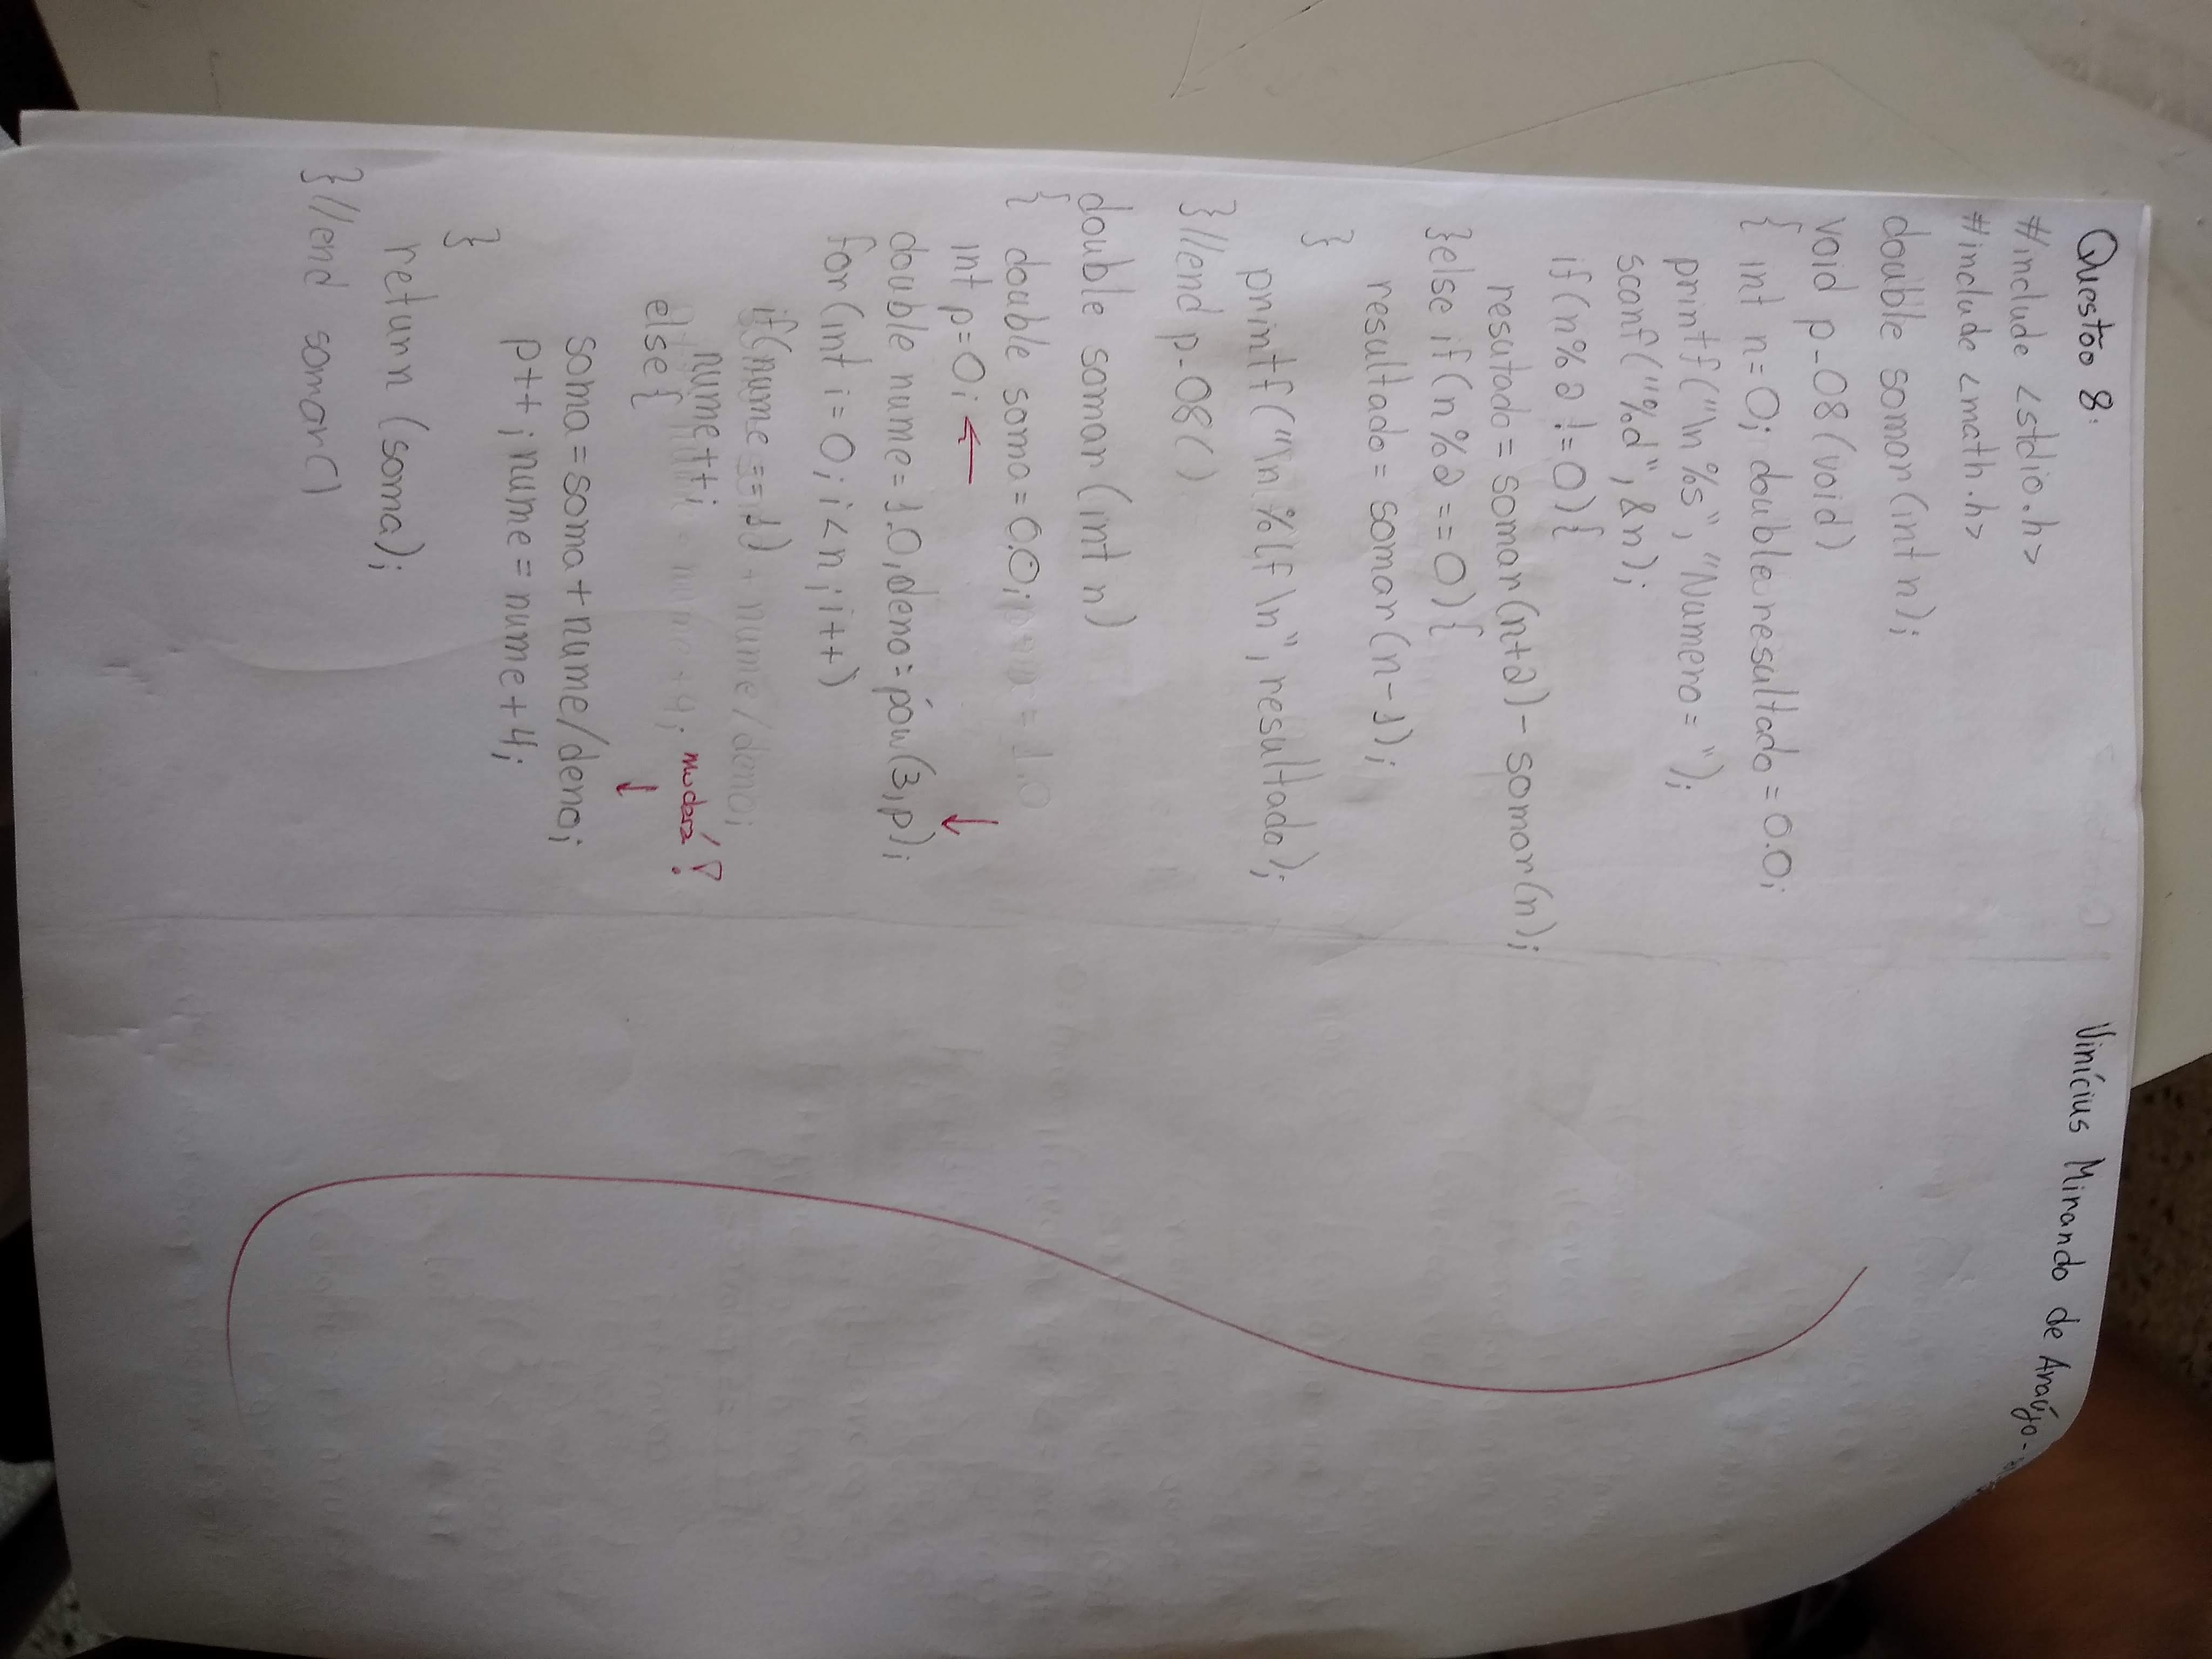 Questão 8: Vinícius Mirando de Araújo -
#include <stdio.h>
#include <math.h>
double somar (int n);
void p_08 (void)
{ int n=0; double resultado = 0.0;
printf ("\n%s", "Numero = ");
scanf ("%d", &n);
if (n%2 != 0) {
resutado = somar (n+2) - somar (n);
}else if (n%2 == 0) {
resultado = somar (n-1);
}
printf ("\n %lf \n", resultado);
}//end p-08 ( )
double somar (int n)
{ double soma = 0.0;
int p=0; ←
double nume = 1.0, deno = pow (3,p); ↓
for (int i = 0; i < n; i++)
if (nume == 1) + nume/deno;
nume++;
else { mudará?
soma = soma + nume/deno; ↓
p++; nume = nume + 4;
}
return (soma);
}//end somar ( )